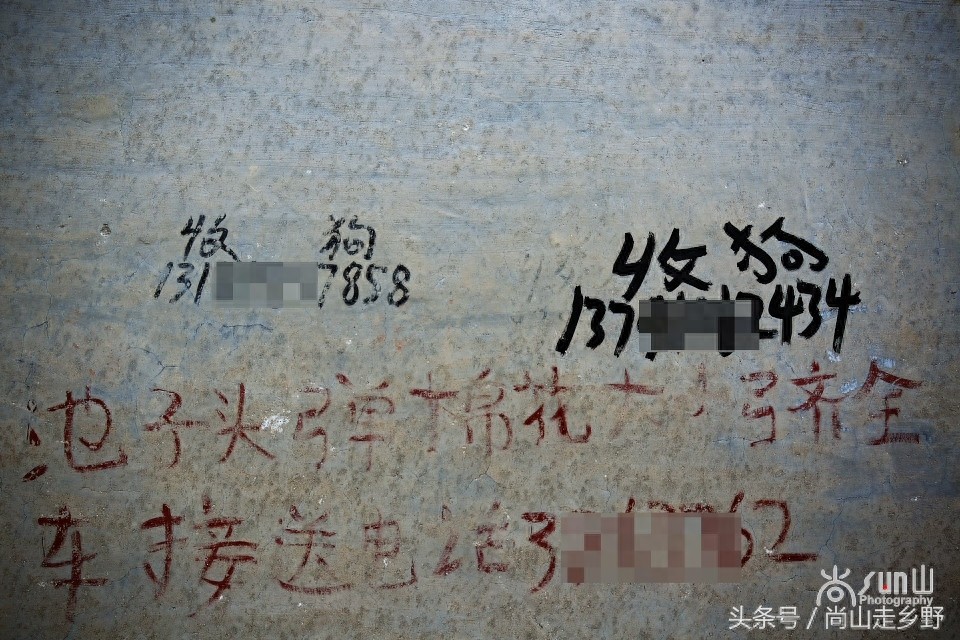 收 狗
131 7858
收狗
137 2434
池子头弹棉花大小号齐全
车接送电话3 62
尚sun山
Photography
头条号 / 尚山走乡野